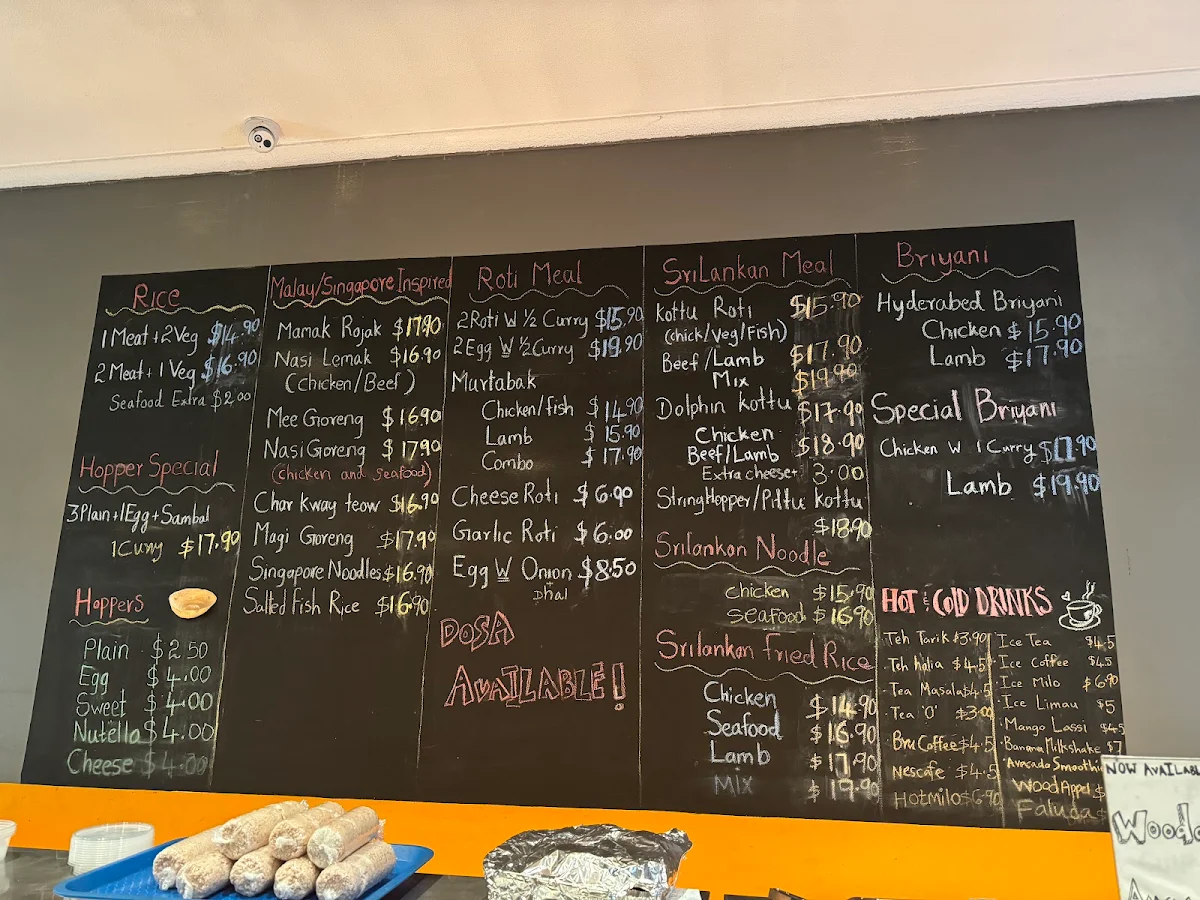 Rice
1 Meat + 2 Veg $14.90
2 Meat + 1 Veg $16.90
Seafood Extra $2.00
Hopper Special
3Plain+1Egg+Sambal
1Curry $17.90
Hoppers
Plain $2.50
Egg $4.00
Sweet $4.00
Nutella $4.00
Cheese $4.00
Malay/Singapore Inspired
Mamak Rojak $17.90
Nasi Lemak $16.90
(Chicken/Beef)
Mee Goreng $16.90
Nasi Goreng $17.90
(chicken and seafood)
Char Kway teow $16.90
Magi Goreng $17.90
Singapore Noodles $16.90
Salted Fish Rice $16.90
Roti Meal
2 Roti W ½ Curry $15.90
2 Egg W ½ Curry $19.90
Murtabak
Chicken/fish $14.90
Lamb $15.90
Combo $17.90
Cheese Roti $6.90
Garlic Roti $6.00
Egg W Onion $8.50
Dhal
DOSA
AVAILABLE!
SriLankan Meal
Kottu Roti $15.90
(chick/Veg/Fish)
Beef/Lamb $17.90
Mix $19.90
Dolphin kottu
Chicken $17.90
Beef/Lamb $18.90
Extra cheese+ 3.00
StringHopper/Pittu kottu
$18.90
Srilankan Noodle
chicken $15.90
seafood $16.90
Srilankan Fried Rice
Chicken $14.90
Seafood $16.90
Lamb $17.90
Mix $19.90
Briyani
Hyderabed Briyani
Chicken $15.90
Lamb $17.90
Special Briyani
Chicken W 1 Curry $17.90
Lamb $19.90
HOT & COLD DRINKS
Teh Tarik $3.90
Teh halia $4.5
Tea Masala $4.5
Tea 'O' $3.00
Bru Coffee $4.5
Nescafe $4.5
Hotmilo $6.90
Ice Tea $4.5
Ice Coffee $4.5
Ice Milo $6.90
Ice Limau $5
Mango Lassi $4.5
Banana Milkshake $7
Avacado Smoothie
Wood Appel $
Faluda
NOW AVAILABL